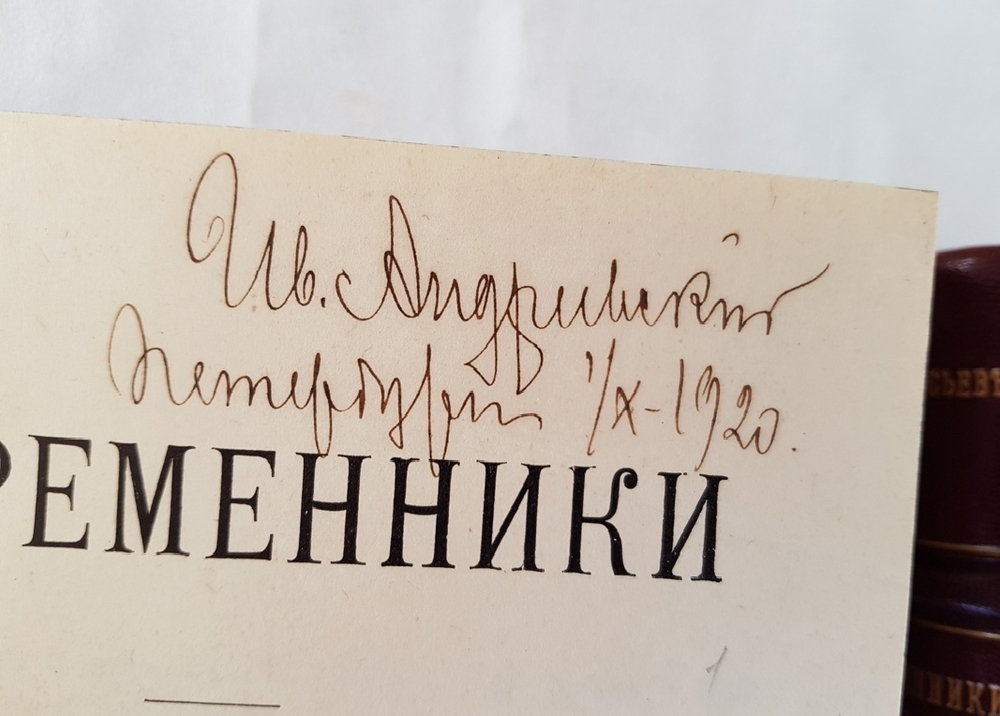 Ив. Андриевский
Петербург 1/X-1920.
РЕМЕННИКИ
1